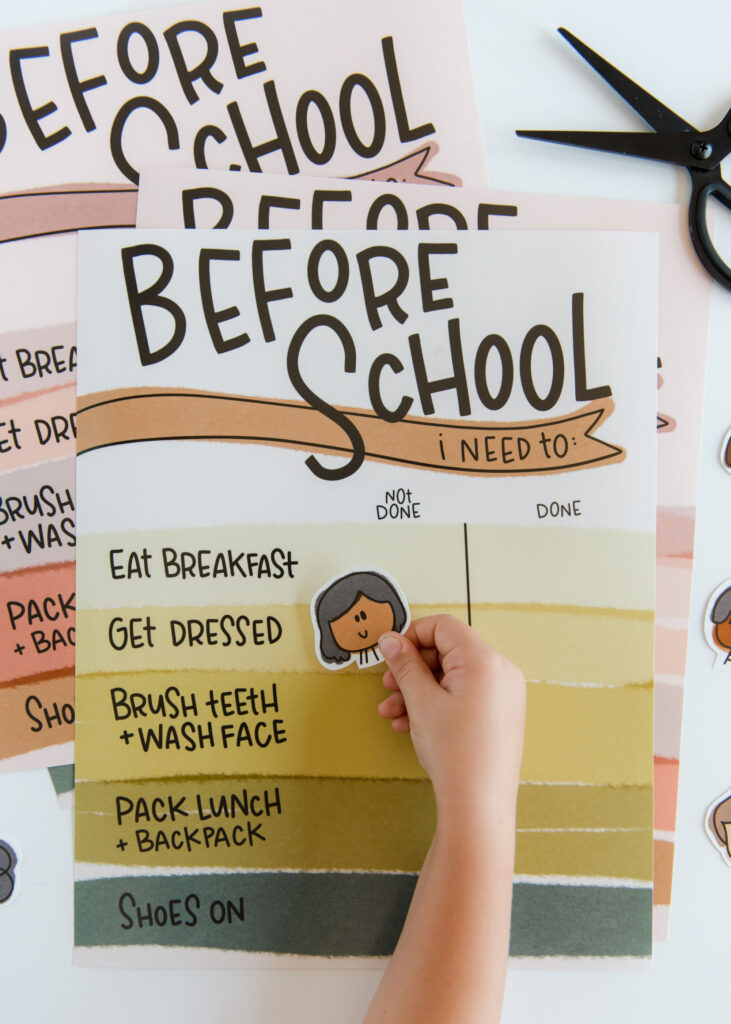 BEFORE
SCHOOL
BEFORE
BEFORE
SCHOOL
i NEED TO:
NOT
DONE
DONE
EAT BREAKFAST
GET DRESSED
BRUSH TEETH
+ WASH FACE
PACK LUNCH
+ BACKPACK
SHOES ON
BREA
DRE
BRUSH
+ WAS
PACK
+ BAC
SHO